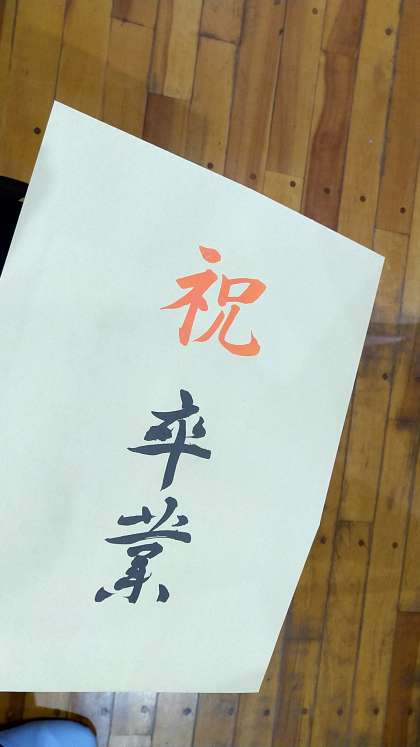 祝
卒業